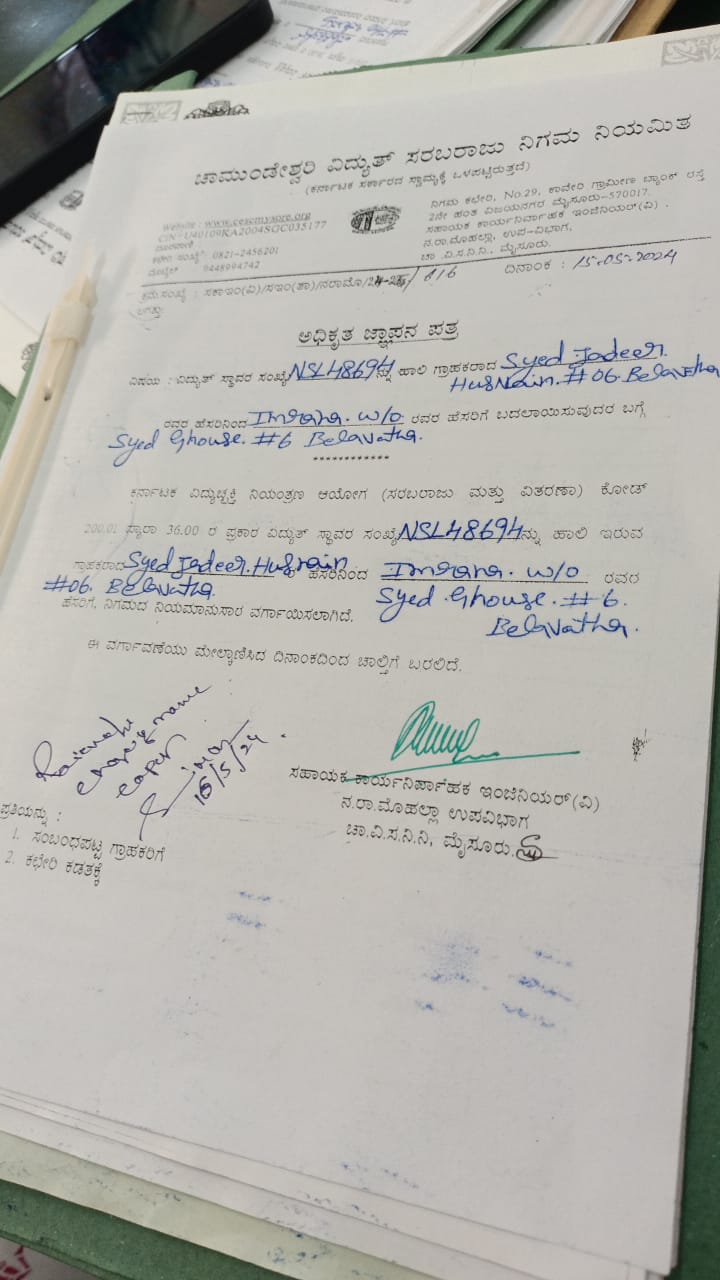 ಚಾಮುಂಡೇಶ್ವರಿ ವಿದ್ಯುತ್ ಸರಬರಾಜು ನಿಗಮ ನಿಯಮಿತ
(ಕರ್ನಾಟಕ ಸರ್ಕಾರದ ಸ್ವಾಮ್ಯಕ್ಕೆ ಒಳಪಟ್ಟಿರುತ್ತದೆ)
Website : www.cescmysore.org
CIN-U40109KA2004SGC035177
ದೂರವಾಣಿ
ಕಛೇರಿ ಸಂಖ್ಯೆ: 0821-2456201
ಮೊಬೈಲ್ 9448994742
ನಿಗಮ ಕಛೇರಿ, No.29, ಕಾವೇರಿ ಗ್ರಾಮೀಣ ಬ್ಯಾಂಕ್ ರಸ್ತೆ
2ನೇ ಹಂತ ವಿಜಯನಗರ ಮೈಸೂರು-570017.
ಸಹಾಯಕ ಕಾರ್ಯನಿರ್ವಾಹಕ ಇಂಜಿನಿಯರ್(ವಿ) .
ನ.ರಾ.ಮೊಹಲ್ಲಾ, ಉಪ-ವಿಭಾಗ,
ಚಾ.ವಿ.ಸ.ನಿ.ನಿ., ಮೈಸೂರು.
ಕ್ರಮ.ಸಂಖ್ಯೆ : ಸಕಾಇಂ(ವಿ)/ಸಇಂ(ತಾ)/ನರಾಮೊ/ 816 ದಿನಾಂಕ : 15.05.2024
ಲಗತ್ತು:
ಅಧಿಕೃತ ಜ್ಞಾಪನ ಪತ್ರ
ವಿಷಯ : ವಿದ್ಯುತ್ ಸ್ಥಾವರ ಸಂಖ್ಯೆ NSL48694 ನ್ನು ಹಾಲಿ ಗ್ರಾಹಕರಾದ Syed Jadeer
Husnain. #06. Belavatha
ರವರ ಹೆಸರಿನಿಂದ Imrana. w/o ರವರ ಹೆಸರಿಗೆ ಬದಲಾಯಿಸುವುದರ ಬಗ್ಗೆ
Syed Ghouse. #6 Belavatha.
************
ಕರ್ನಾಟಕ ವಿದ್ಯುಚ್ಛಕ್ತಿ ನಿಯಂತ್ರಣ ಆಯೋಗ (ಸರಬರಾಜು ಮತ್ತು ವಿತರಣಾ) ಕೋಡ್
200.01 ಸ್ಕಾರಾ 36.00 ರ ಪ್ರಕಾರ ವಿದ್ಯುತ್ ಸ್ಥಾವರ ಸಂಖ್ಯೆ NSL48694 ನ್ನು ಹಾಲಿ ಇರುವ
ಗ್ರಾಹಕರಾದ Syed Jadeer. Husnain ರ ಹೆಸರಿನಿಂದ Imrana. w/o ರವರ
#06. Belavatha. Syed Ghouse. #6.
ಹೆಸರಿಗೆ, ನಿಗಮದ ನಿಯಮಾನುಸಾರ ವರ್ಗಾಯಿಸಲಾಗಿದೆ. Belavatha.
ಈ ವರ್ಗಾವಣೆಯು ಮೇಲ್ಕಾಣಿಸಿದ ದಿನಾಂಕದಿಂದ ಚಾಲ್ತಿಗೆ ಬರಲಿದೆ.
change name
copy
16/5/24
ಸಹಾಯಕ ಕಾರ್ಯನಿರ್ವಾಹಕ ಇಂಜಿನಿಯರ್(ವಿ)
ನ.ರಾ.ಮೊಹಲ್ಲಾ ಉಪವಿಭಾಗ
ಚಾ.ವಿ.ಸ.ನಿ.ನಿ, ಮೈಸೂರು.
ಪ್ರತಿಯನ್ನು :
1. ಸಂಬಂಧಪಟ್ಟ ಗ್ರಾಹಕರಿಗೆ
2. ಕಛೇರಿ ಕಡತಕ್ಕೆ